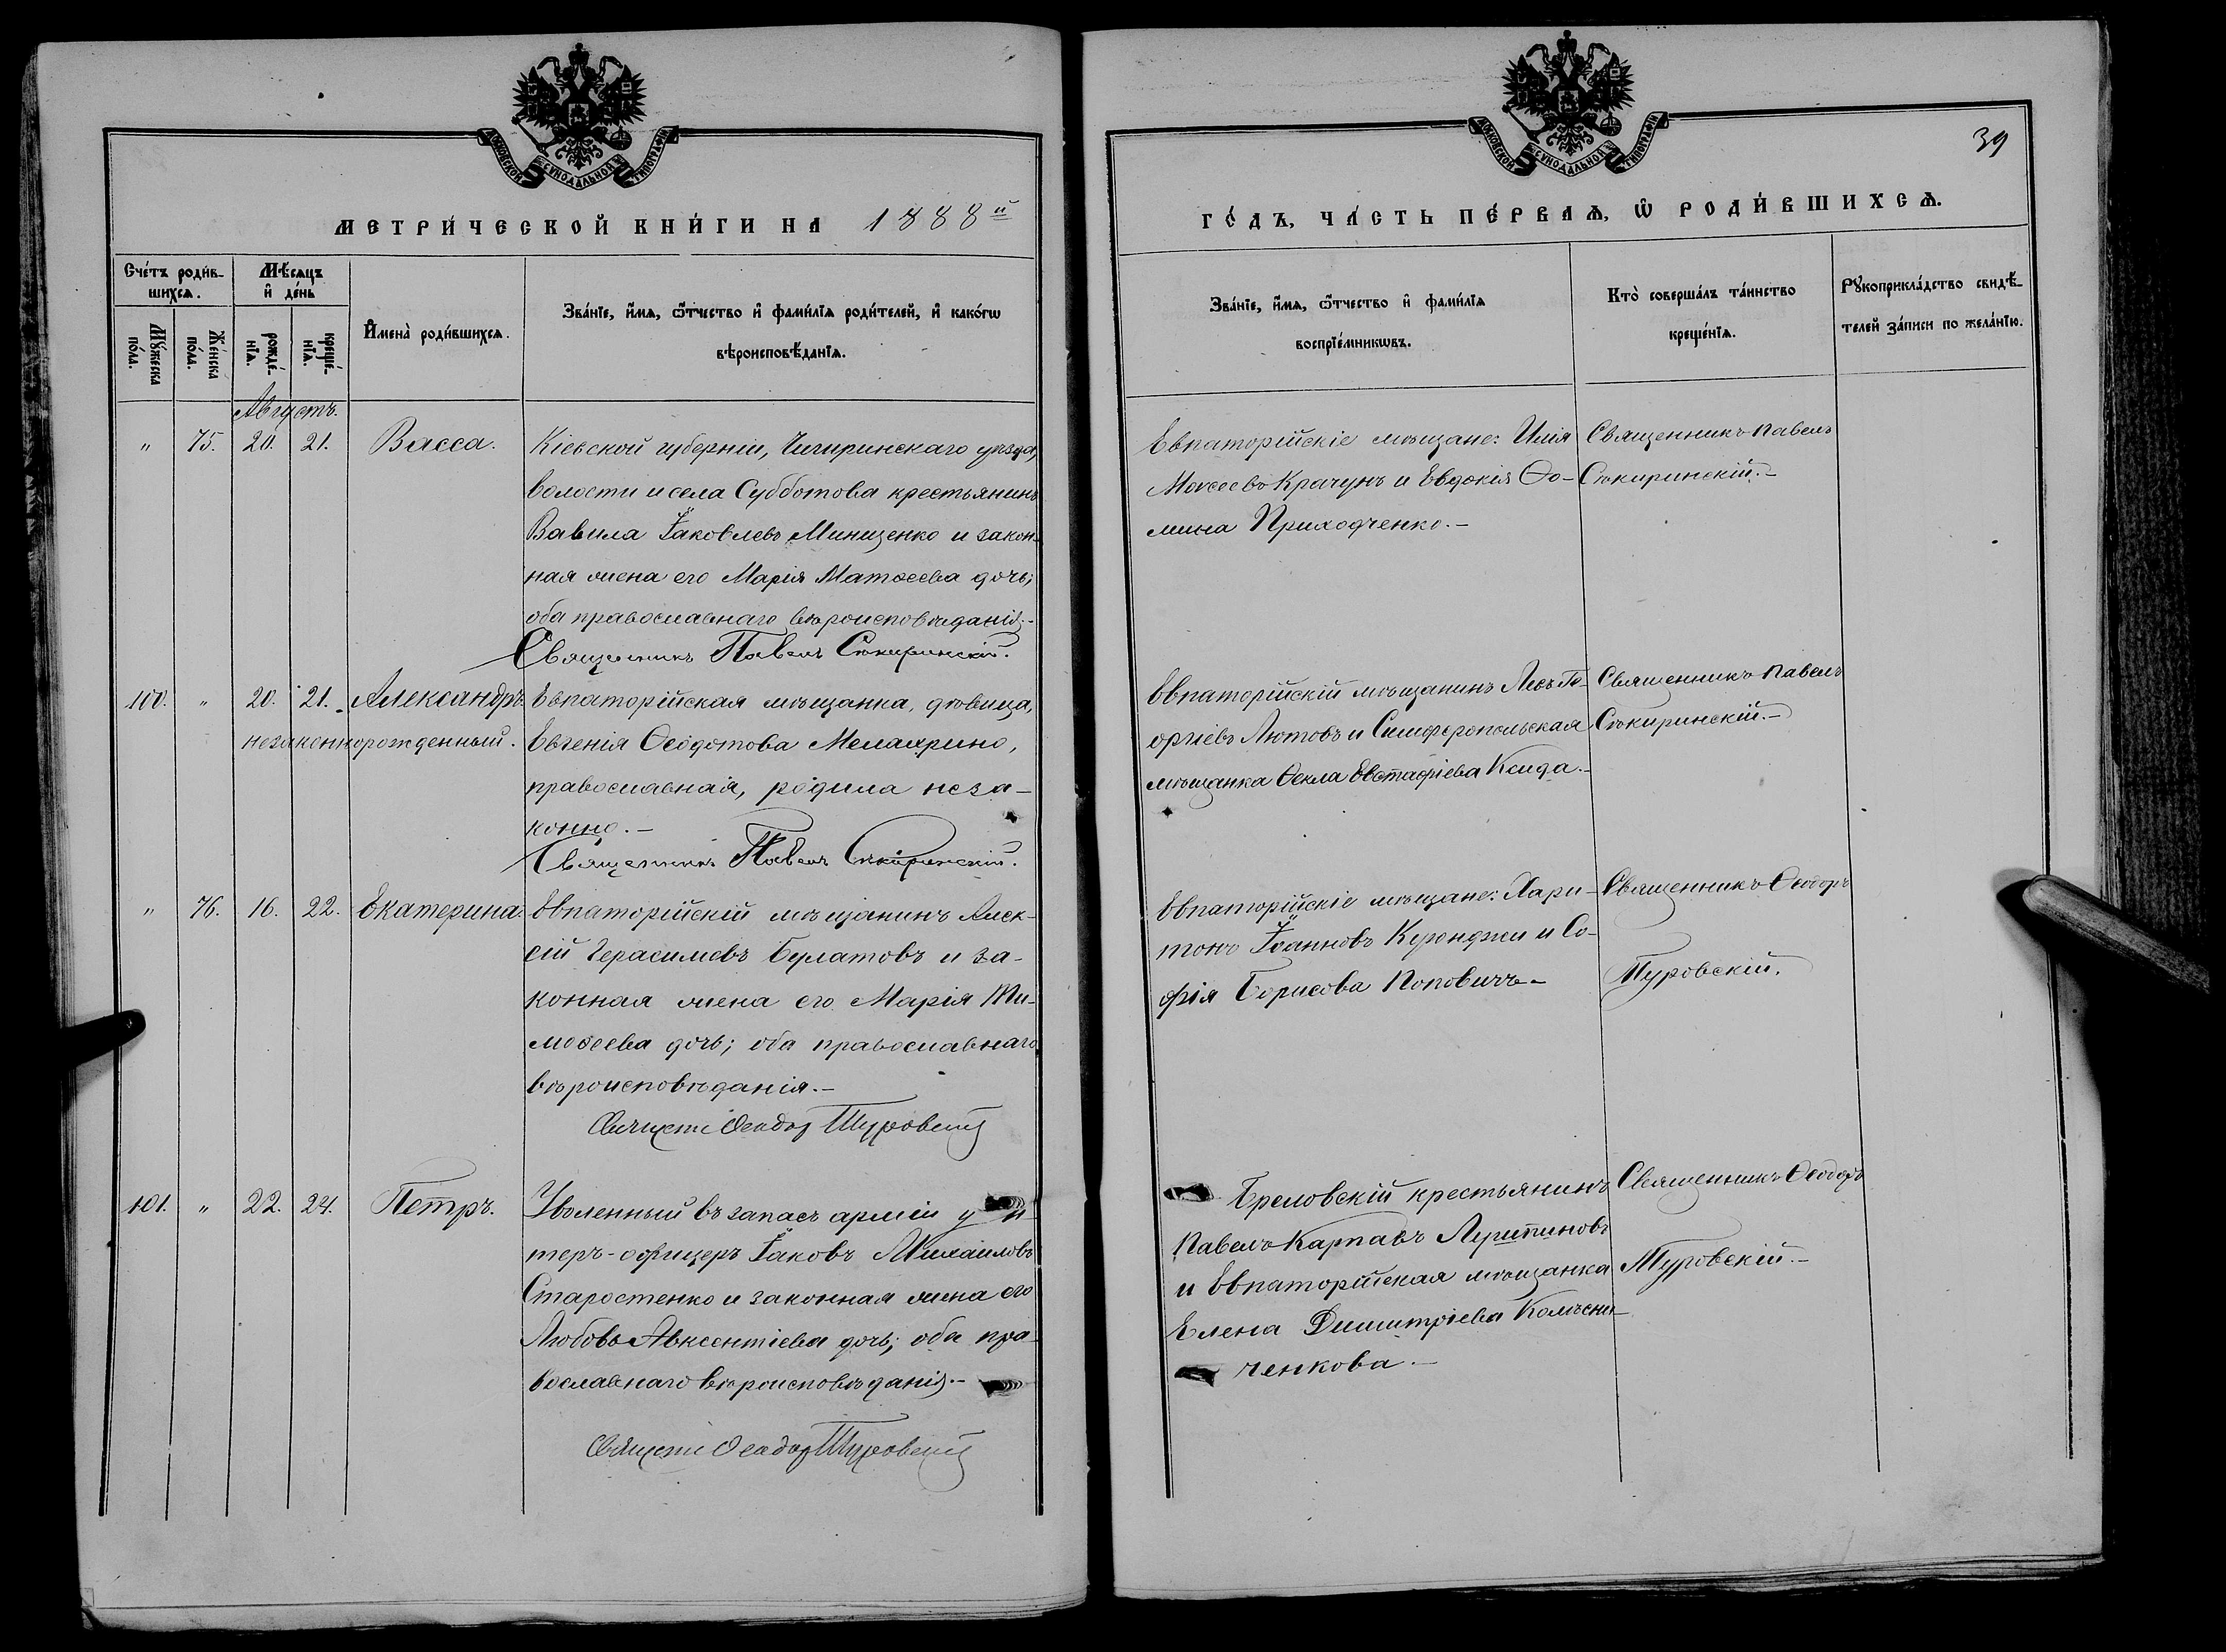 МОСКОВСКОЙ СѴНОДАЛЬНОЙ ТИПОГРАФІИ
МЕТРИ́ЧЕСКОЙ КНИ́ГИ НА 1888й
Сче́тъ роди́в-
шихсѧ.
Мꙋ́жеска
по́ла.
Же́нска
по́ла.
Мѣ́сѧцъ
и҆ де́нь
рожде́-
нїѧ.
креще́-
нїѧ.
И҆мена̀ роди́вшихсѧ.
Зва́нїе, и҆́мѧ, ѻ҆́тчество и҆ фами́лїѧ роди́телей, и҆ како́гѡ
вѣроисповѣ́данїѧ.
Августъ.
" 75. 20. 21. Васса.
Кіевской губерніи, Чигиринскаго уѣзда,
волости и села Субботова крестьянинъ
Вавила Іаковлевъ Минищенко и закон-
ная жена его Марія Матѳеева дочь;
оба православнаго вѣроисповѣданія.-
Священникъ Павелъ Сѣкиринскій.
100. " 20. 21. Александръ
незаконнорожденный.
Евпаторійская мѣщанка, дѣвица,
Евгенія Ѳеодотова Мелахрино,
православная, родила неза-
конно.-
Священникъ Павелъ Сѣкиринскій.
" 76. 16. 22. Екатерина.
Евпаторійскій мѣщанинъ Алек-
сій Герасимовъ Булатовъ и за-
конная жена его Марія Ти-
моѳеева дочь; оба православнаго
вѣроисповѣданія.-
Священ Ѳеодор Туровскій
101. " 22. 24. Петръ.
Уволенный въ запасъ арміи ун-
теръ-офицеръ Іаковъ Михаиловъ
Старостенко и законная жена его
Любовь Авксентіева дочь; оба пра-
вославнаго вѣроисповѣданія.-
Священ Ѳеодор Туровскій
МОСКОВСКОЙ СѴНОДАЛЬНОЙ ТИПОГРАФІИ
39
ГО́ДЪ, ЧА́СТЬ ПЕ́РВАѦ, Ѡ҆ РОДИ́ВШИХСѦ.
Зва́нїе, и҆́мѧ, ѻ҆́тчество и҆ фами́лїѧ
воспрїе́мникѡвъ.
Кто̀ соверша́лъ та́инство
креще́нїѧ.
Рꙋкоприкла́дство свидѣ́-
телей за́писи по жела́нїю.
Евпаторійскіе мѣщане: Илія
Моисеевъ Крачунъ и Евдокія Ѳо-
мина Приходченко.-
Священникъ Павелъ
Сѣкиринскій.-
Евпаторійскій мѣщанинъ Левъ Ге-
оргіевъ Лютовъ и Симферопольская
мѣщанка Ѳекла Евстафіева Ксида.-
Священникъ Павелъ
Сѣкиринскій.-
Евпаторійскіе мѣщане: Хари-
тонъ Іоанновъ Куюнджи и Со-
фія Борисова Поповичъ.-
Священникъ Ѳеодоръ
Туровскій.
Павелъ Карповъ
крестьянинъ
и Евпаторійская мѣщанка
Елена Димитріева Колѣсни-
ченкова.-
Священникъ Ѳеодоръ
Туровскій.-